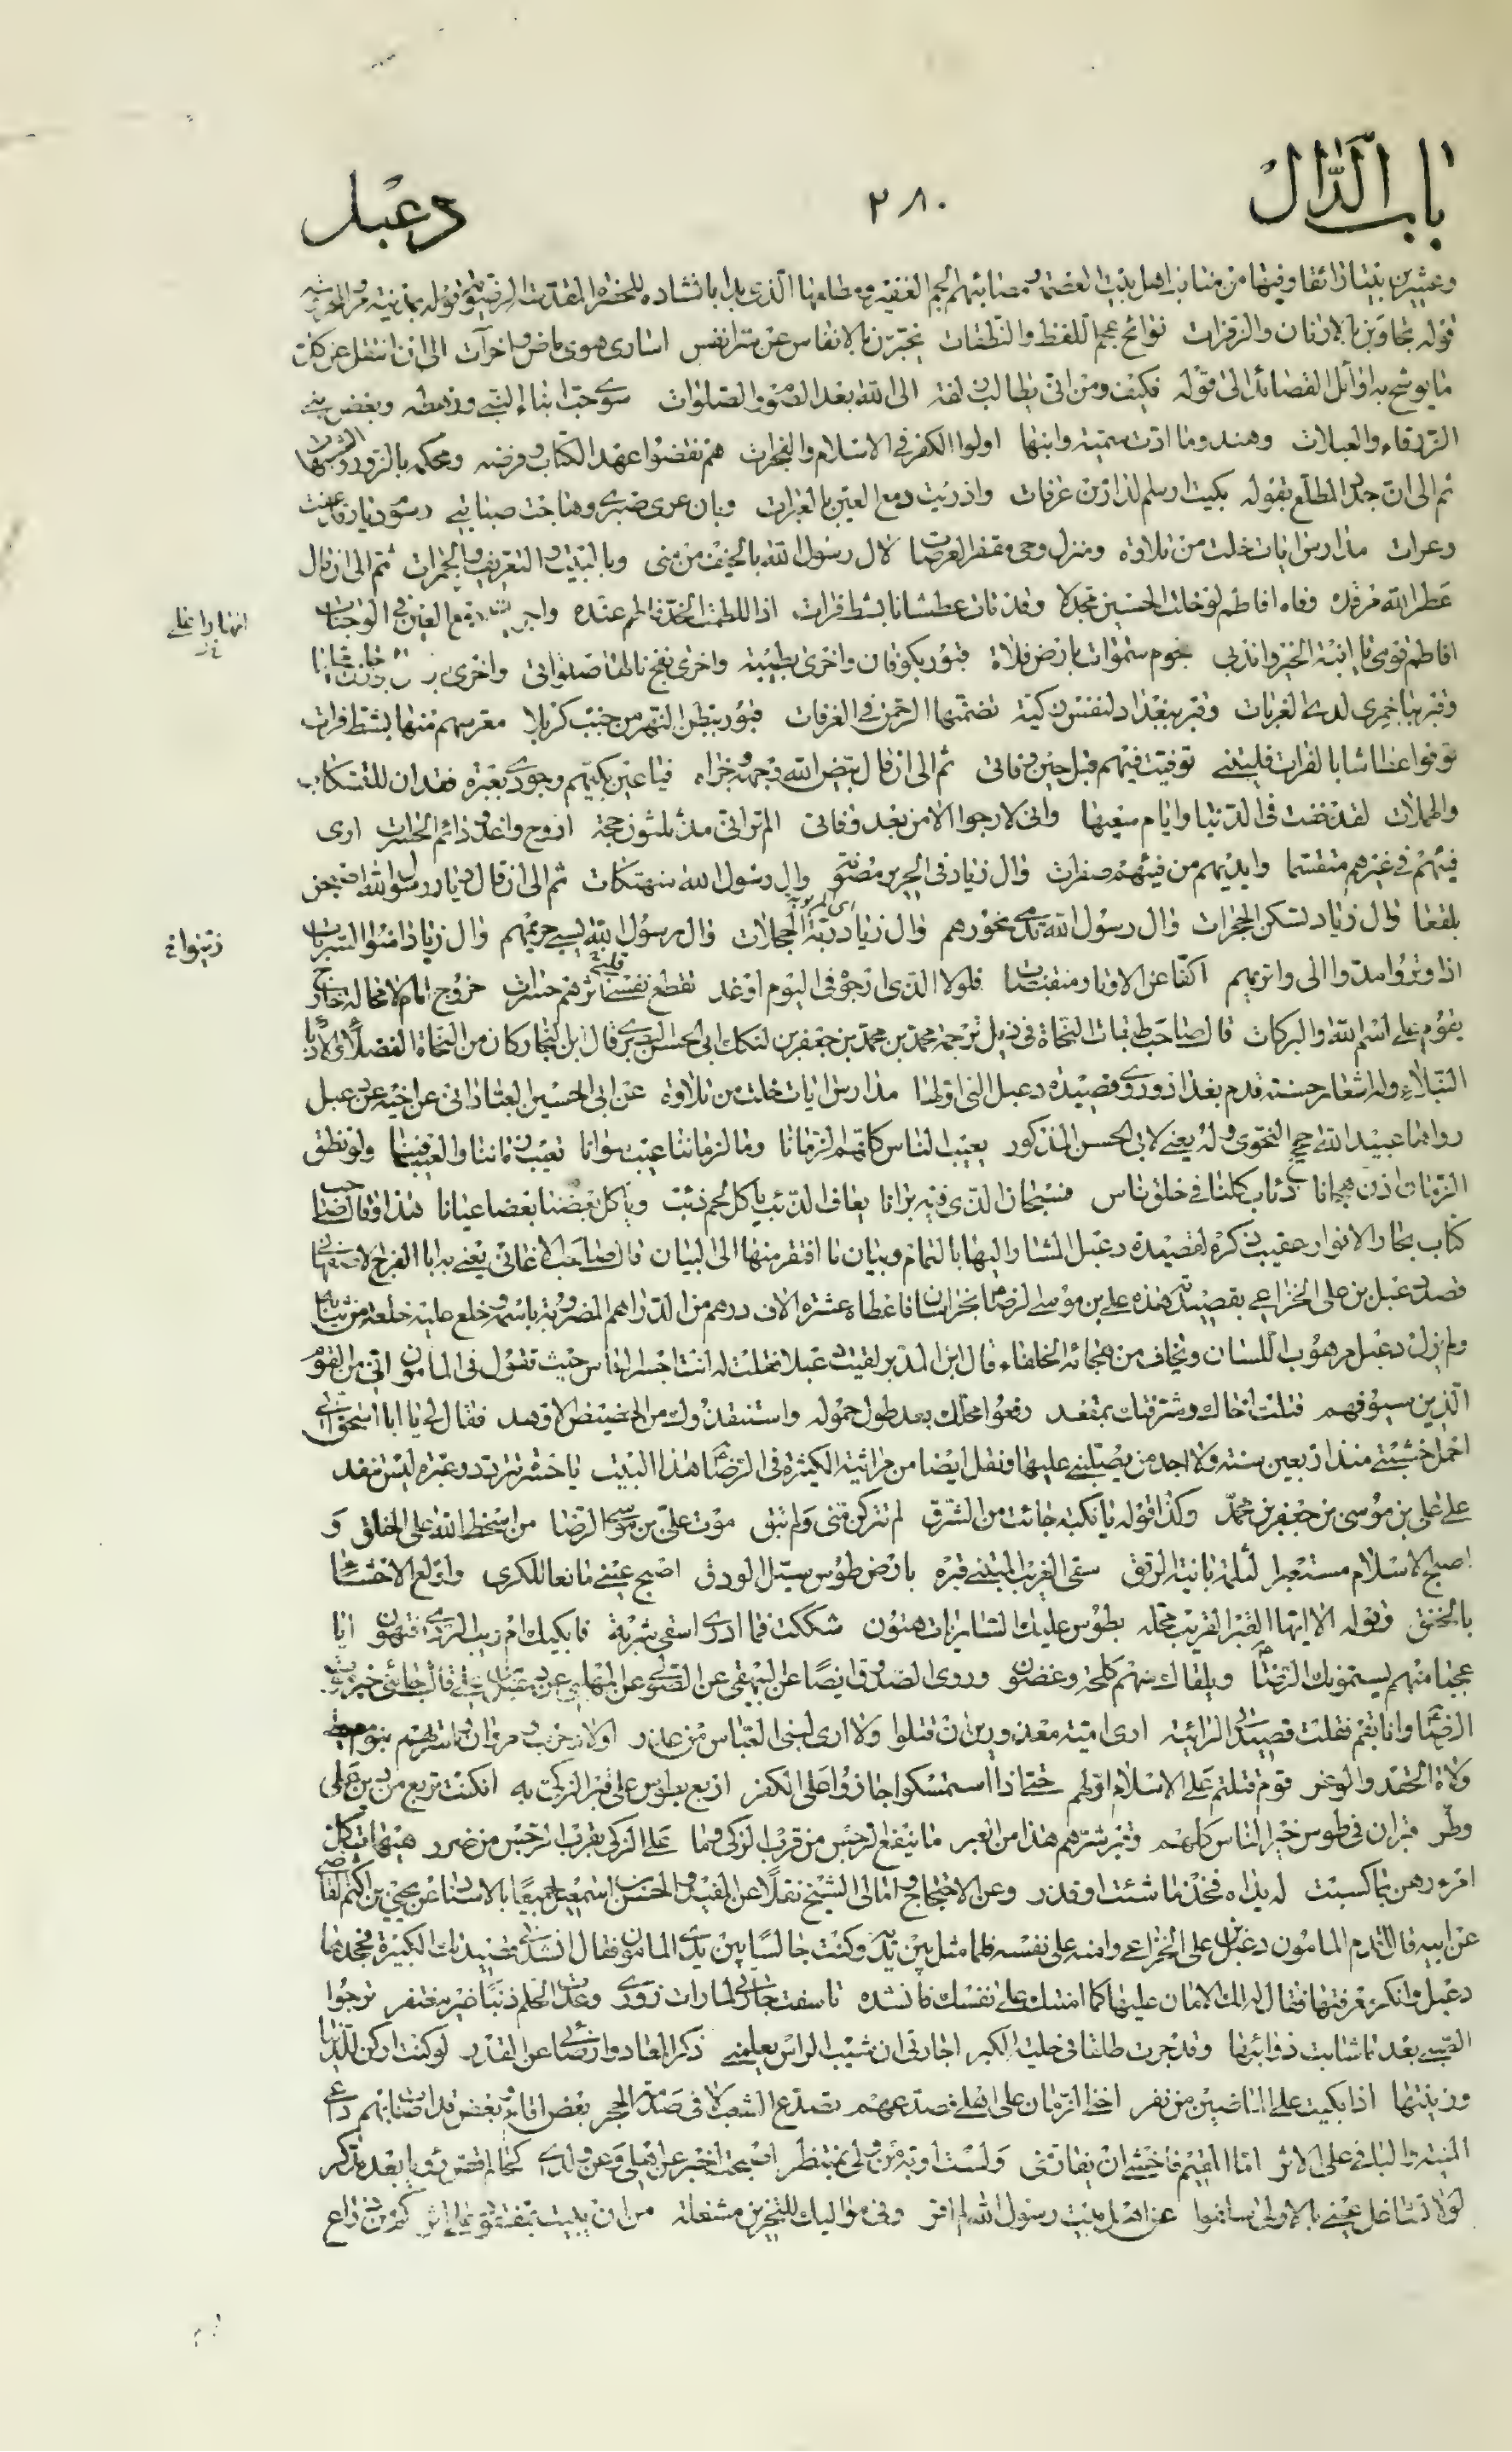 باب الدّال
٢٨٠
دعبل
وعشرين بيتا رائقا وفيها من مناقب اهل بيت العصمة ومصائبهم الجم الغفير ومطلعها الّذي بدا بانشاده للحضرة المقدّسة الرضوية قوله
قوله تجاوبن بالارنان والزفرات نوائح عجم اللفظ والنطقات يخبّرن بالانفاس عن سرّ انفس اسارى هوى ماض واخرآت الى ان انتقل عن
ما يوشح به اوائل القصائد الى قوله فكيف ومن انّى يطالب زلفة الى الله بعد الصّوم والصّلوات سوى حبّ ابناء النّبي ورهطه وبغض بني
الزّرقاء والعبلات وهند وما ادّت سميّة وابنها اولوا الكفر في الاسلام والفجرات هم نقضوا عهد الكتاب وفرضه ومحكمه بالزّور والشبهات
ثم الى ان جدّد المطلع بقوله بكيت لرسم الدار من عرفات واذريت دمع العين بالعبرات وبان عرى صبري وهاجت صبابتي رسوم ديار قد عفت
وعرات مدارس ايات خلت من تلاوة ومنزل وحي مقفر العرصات لال رسول الله بالخيف من منى وبالبيت والتعريف والجمرات ثم الى ان قال
افاطم لو خلت الحسين مجدّلا وقد مات عطشانا بشط فرات اذا للطمت الخدّ فاطم عنده واجريت دمع العين في الوجنات
افاطم قومي يا ابنة الخير واندبي نجوم سموات بارض فلاة قبور بكوفان واخرى بطيبة واخرى بفخ نالها صلواتي واخرى
وقبر بباخمرى لدى الغربات وقبر ببغداد لنفس زكيّة تضمّنها الرّحمن في الغرفات قبور ببطن النهر من جنب كربلا معرسهم منها بشط فرات
توفوا عطاشا بالفرات فليتني توفيت فيهم قبل حين وفاتي ثم الى ان قال بيّض الله وجهه وجزاه فيا عين بكّيهم وجودي بعبرة فقد ان للتسكاب
والهملات لقد خفت في الدّنيا وايام سعيها واني لارجو الامن بعد وفاتي الم تر اني مذ ثلثون حجة اروح واغدو دائم الحسرات ارى
فيئهم في غيرهم متقسما وايديهم من فيئهم صفرات وال زياد في الحرير مصونة وال رسول الله منهتكات ثم الى ان قال ديار رسول الله اصبحن
بلقعا وال زياد تسكن الحجرات وال رسول الله تدمى نحورهم وال زياد ربّة الحجلات وال رسول الله يسبى حريمهم وال زياد امنوا السّربات
اذا وتروا مدّوا الى واتريهم اكفّا عن الاوتار منقبضات فلولا الّذي ارجوه في اليوم او غد تقطّع نفسي اثرهم حسرات خروج امام لا محالة خارج
يقوم على اسم الله والبركات قال صاحب طبقات النحاة في ذيل ترجمة محمد بن محمد بن جعفر بن لنكك ابي الحسن البصري قال ابن النجار كان من النحاة الفضلاء والادباء
النبلاء وله اشعار حسنة قدم بغداد وروى قصيدة دعبل التي اولها مدارس ايات خلت من تلاوة عن ابي الحسين العباداني عن اخيه عن دعبل
رواها عبيد الله جخ النحوي وله يعني لابي الحسن المذكور يعيب الناس كلّهم الزمانا وما لزماننا عيب سوانا نعيب زماننا والعيب فينا ولو نطق
الزمان اذن هجانا ذئاب كلنا في خلق ناس فسبحان الذي فيه برانا يعاف الذئب يأكل لحم ذئب ويأكل بعضنا بعضا عيانا هذا وقال صاحب
كتاب بحار الانوار عقيب ذكره لقصيدة دعبل المشار اليها بالتمام وبيان ما افتقر منها الى البيان قال صاحب الاغاني يعني به ابا الفرج الاصفهاني
قصد دعبل بن علي الخزاعي بقصيدته هذه علي بن موسى الرضا بخراسان فاعطاه عشرة الاف درهم من الدراهم المضروبة باسمه وخلع عليه خلعة من ثيابه
ولم يزل دعبل مرهوب اللسان ويخاف من هجائه الخلفاء قال ابن المدبر لقيت دعبلا فقلت له انت اجسر الناس حيث تقول في المامون اني من القوم
الّذين سيوفهم قتلت اخاك وشرّفتك بمقعد رفعوا محلّك بعد طول خموله واستنقذوك من الحضيض الاوهد فقال لي يا ابا اسحق انّي
احمل خشبتي منذ اربعين سنة ولا اجد من يصلبني عليها ونقل ايضا من مراثيه الكثيرة في الرّضا هذا البيت يا حسرة تتردد وعبرة ليس تنفد
على علي بن موسى بن جعفر بن محمّد وكذا قوله يا نكبة جاءت من الشّرق لم تتركن منّي ولم تبق موت علي بن موسى الرضا من سخط الله على الخلق و
اصبح الاسلام مستعبرا لثلمة بائنة الرتق سقى الغريب المبتنى قبره بارض طوس سبل الودق اصبح عيني مانعا للكرى واولع الاحشاء
بالخفق وقوله الا ايّها القبر الغريب محلّه بطوس عليك الساريات هتون شككت فما ادري اسقي شربة فابكيك ام ريب الردى فتهون ايا
عجبا منهم يسمّونك الرّضا ويلقاك منهم كلحة وغضون وروى الصدوق ايضا عن البيهقي عن الصّولي عن المهلبي عن دعبل بن علي قال جاءني خبر موت
الرضا وانا بقم فقلت قصيدتي الرائية ارى اميّة معذورين ان قتلوا ولا ارى لبني العبّاس من عذر اولاد حرب ومروان واسرتهم بنو معيط
ولاة الحقد والوغر قوم قتلتم على الاسلام اوّلهم حتى اذا استمسكوا جازوا على الكفر اربع بطوس على قبر الزكيّ به ان كنت تربع من دين على
وطر قبران في طوس خير الناس كلهم وقبر شرّهم هذا من العبر ما ينفع الرّجس من قرب الزكيّ وما على الزكي بقرب الرّجس من ضرر هيهات كل
امرء رهن بما كسبت له يداه فخذ ما شئت او فذر وعن الاحتجاج وامالي الشيخ نقلا عن المفيد والحسن بن اسمعيل جميعا بالاسناد عن يحيى بن اكثم القاضي
عن ابيه قال اقدم المامون دعبل بن علي الخزاعي وامنه على نفسه فلما مثل بين يديه وكنت جالسا بين يدي المامون فقال انشدني قصيدتك الكبيرة فجحدها
دعبل وانكر معرفتها فقال له لك الامان عليها كما امنتك على نفسك فانشده تاسفت جارتي لما رات زوري وعدّت الحلم ذنبا غير مغتفر ترجوا
الصّبى بعد ما شابت ذوائبها وقد جرت طلقا في حلبة الكبر اجارتي ان شيب الراس يعلمني ذكر المعاد وارضاني عن القدر لو كنت اركن للدنيا
وزينتها اذا بكيت على الماضين من نفر اخنى الزمان على اهلي فصدّعهم تصدّع الشعب لاقى صدمة الحجر بعض اقام وبعض قد اصات بهم داعي
المنيّة والباقي على الاثر امّا المقيم فاخشى ان يفارقني ولست اوبة من ولّى بمنتظر اصبحت اخبر عن اهلي وعن ولدي كحالم قصّ رؤيا بعد مدّكر
لولا تشاغل عيني بالاولى سلفوا عن اهل بيت رسول الله لم اقر وفي مواليك للتحزين مشغلة من ان يبيت بمفقود على اثر كم من ذراع